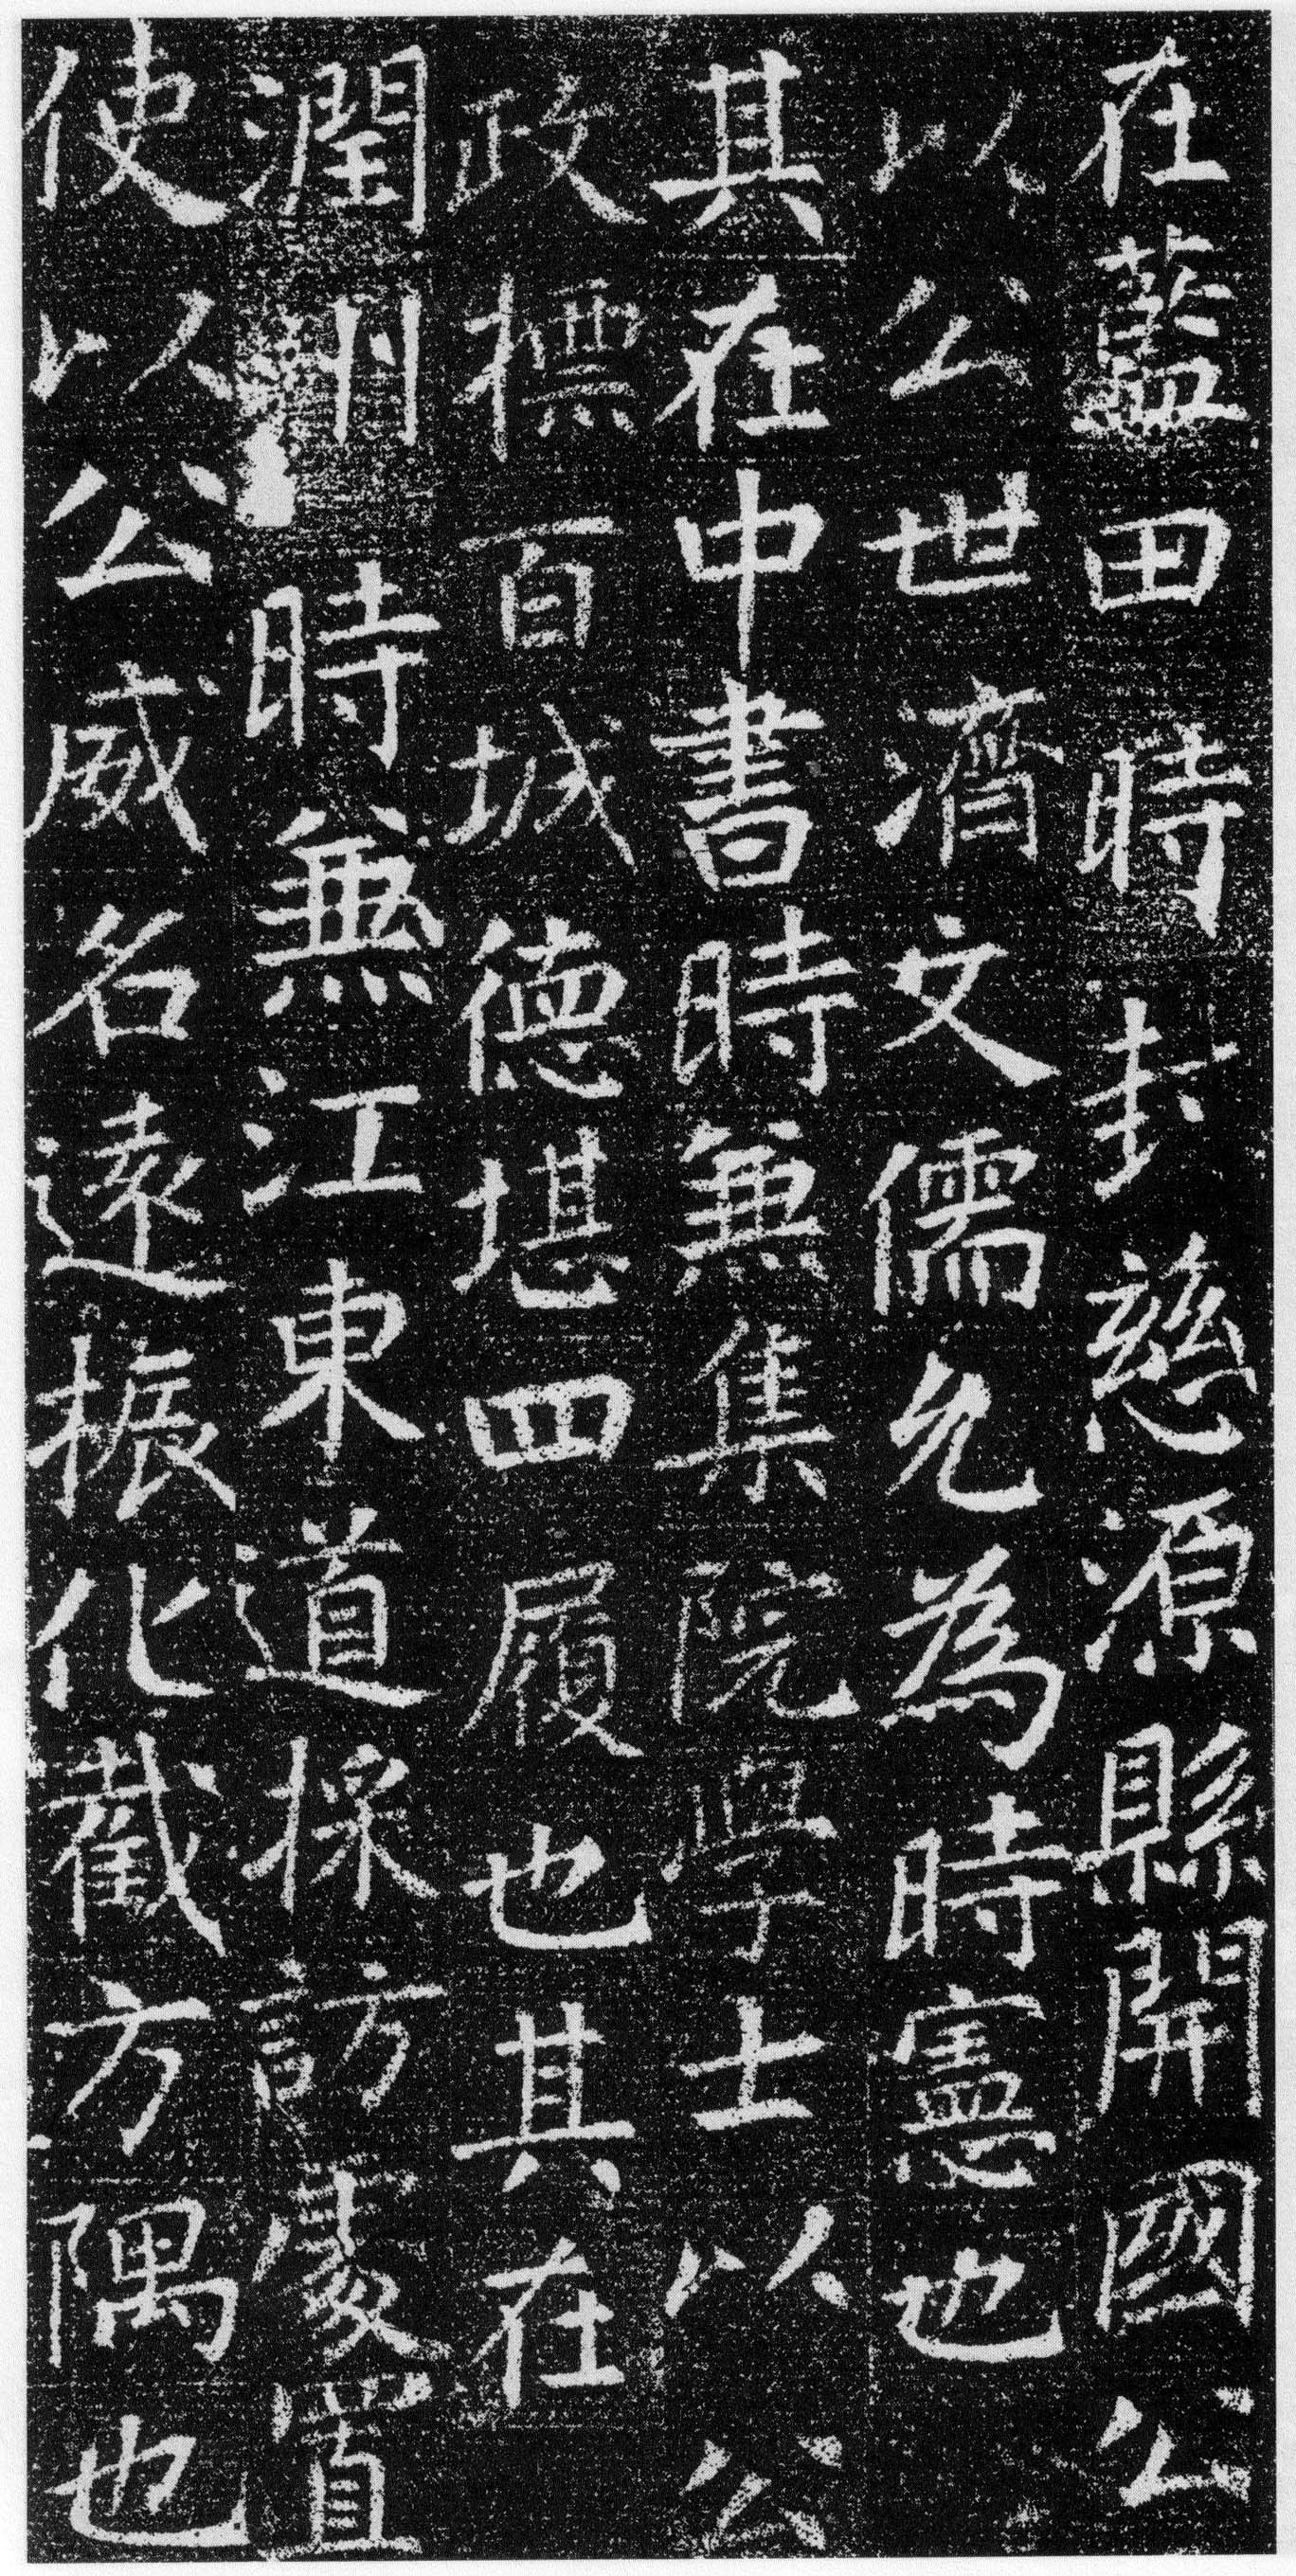 在藍田時封慈源縣開國公
以公世濟文儒允為時憲也
其在中書時兼集院學士以公
政標百城德堪四履也其在
潤州時兼江東道採訪處置
使以公威名遠振化截方隅也